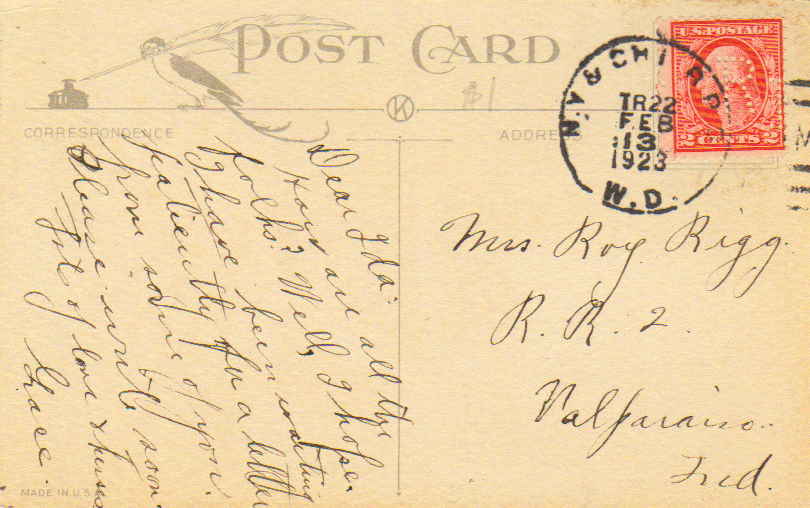 POST CARD
K
$1
CORRESPONDENCE
ADDRESS
U.S. POSTAGE
2 CENTS 2
N.Y & CHI R.P.
TR 22
FEB
13
1923
W.D.
Dear Ida:
How are all the
folks? Well, I hope.
I have been waiting
patiently for a letter
from some of you.
Please write soon.
Lots of love & kisses
Grace.
Mrs. Roy Rigg.
R. R. 2.
Valparaiso.
Ind.
MADE IN U.S.A.